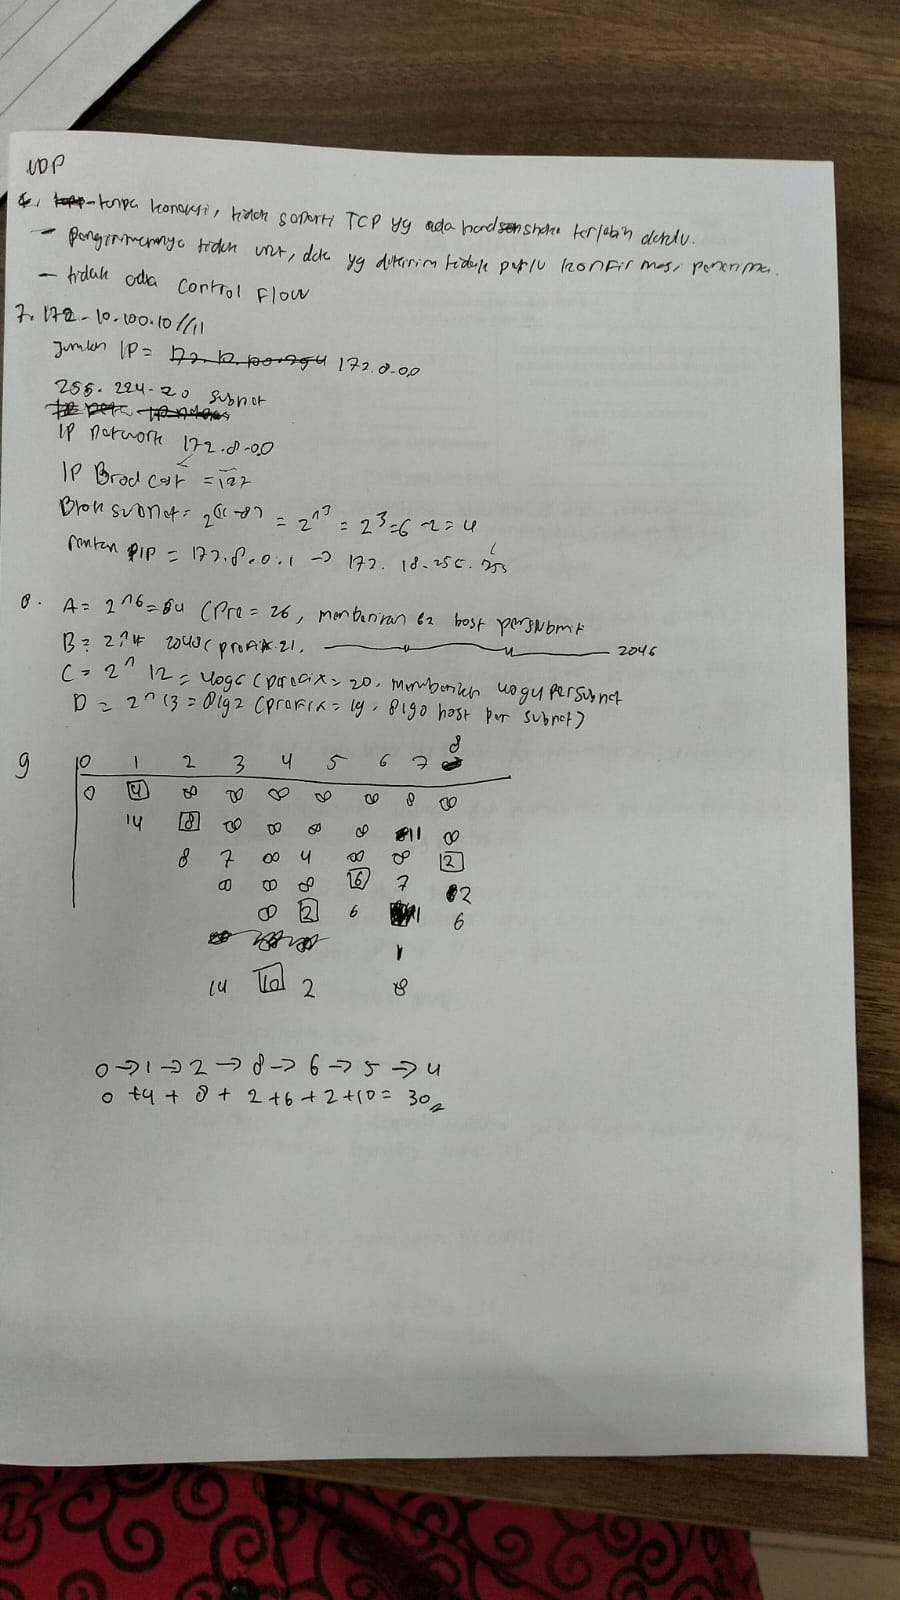 UDP
6. - tanpa koneksi, tidak seperti TCP yg ada handsenshake terlebih dahulu.
- Pengirimannya tidak urut, data yg dikirim tidak perlu konfirmasi penerima.
- tidak ada control flow
7. 172.10.100.10//11
Jumlah IP = 172.8.0.0
255.224.20 subnet
IP Network 172.8.0.0
IP Brodcast =
Blok subnet = = 2^3 = 2³=6-2=4
IP = 172.8.0.1 → 172.18.255.255
8. A = 2^6=64 (Pre = 26, memberikan 62 host persubnet
B = 2048 (prefix 21, 2046
C = 2^12 = 4096 (prefix = 20, memberikan 4094 persubnet
D = 2^13 = 8192 (prefix = 19, 8190 host per subnet)
9 0 1 2 3 4 5 6 7 8
0 4 ∞ ∞ ∞ ∞ ∞ ∞ ∞
14 8 ∞ ∞ ∞ ∞ 11 ∞
8 7 ∞ 4 ∞ ∞ 2
∞ ∞ ∞ 6 7 2
∞ 2 6 1 6
1
14 10 2 ∞
0 → 1 → 2 → 8 → 6 → 5 → 4
0 + 4 + 8 + 2 + 6 + 2 + 10 = 30